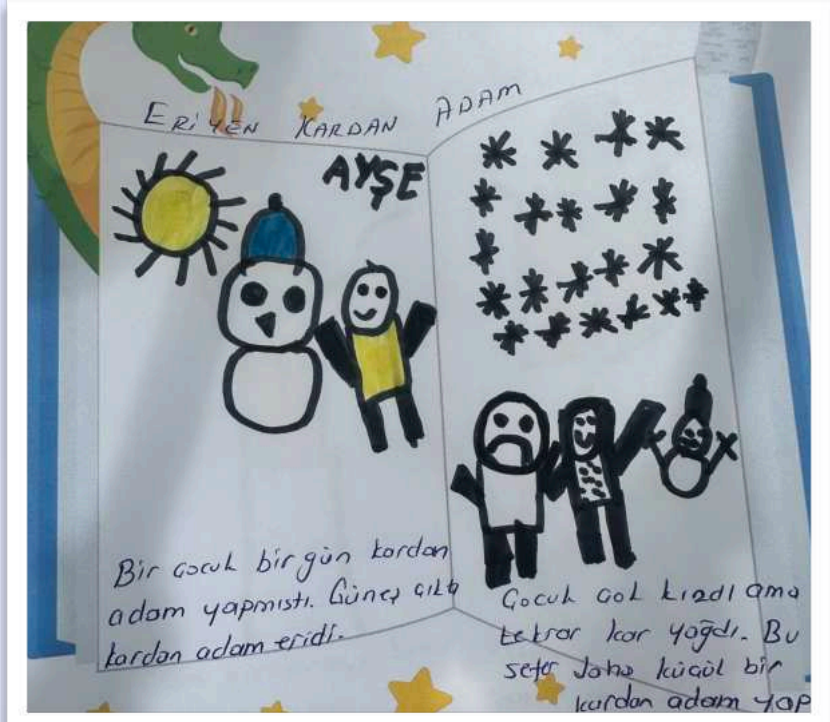 ERİYEN KARDAN ADAM
AYŞE
Bir çocuk bir gün kardan
adam yapmıştı. Güneş çıktı
kardan adam eridi.
Çocuk çok kızdı ama
tekrar kar yağdı. Bu
sefer daha küçük bir
kardan adam YAP